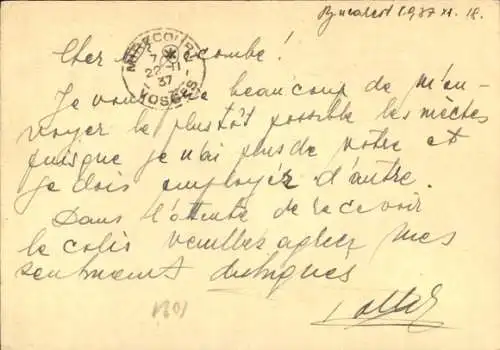 Bucarest 1937 XI. 18.
Cher
MIRECOURT
7
22 - 11
37
VOSGES
Je vous prie beaucoup de m'en-
voyer le plustôt possible les mèches
puisque je n'ai plus de votre et
je dois employer d'autre.
Dans l'attente de recevoir
le colis veuillez agréez mes
sentiment
1801